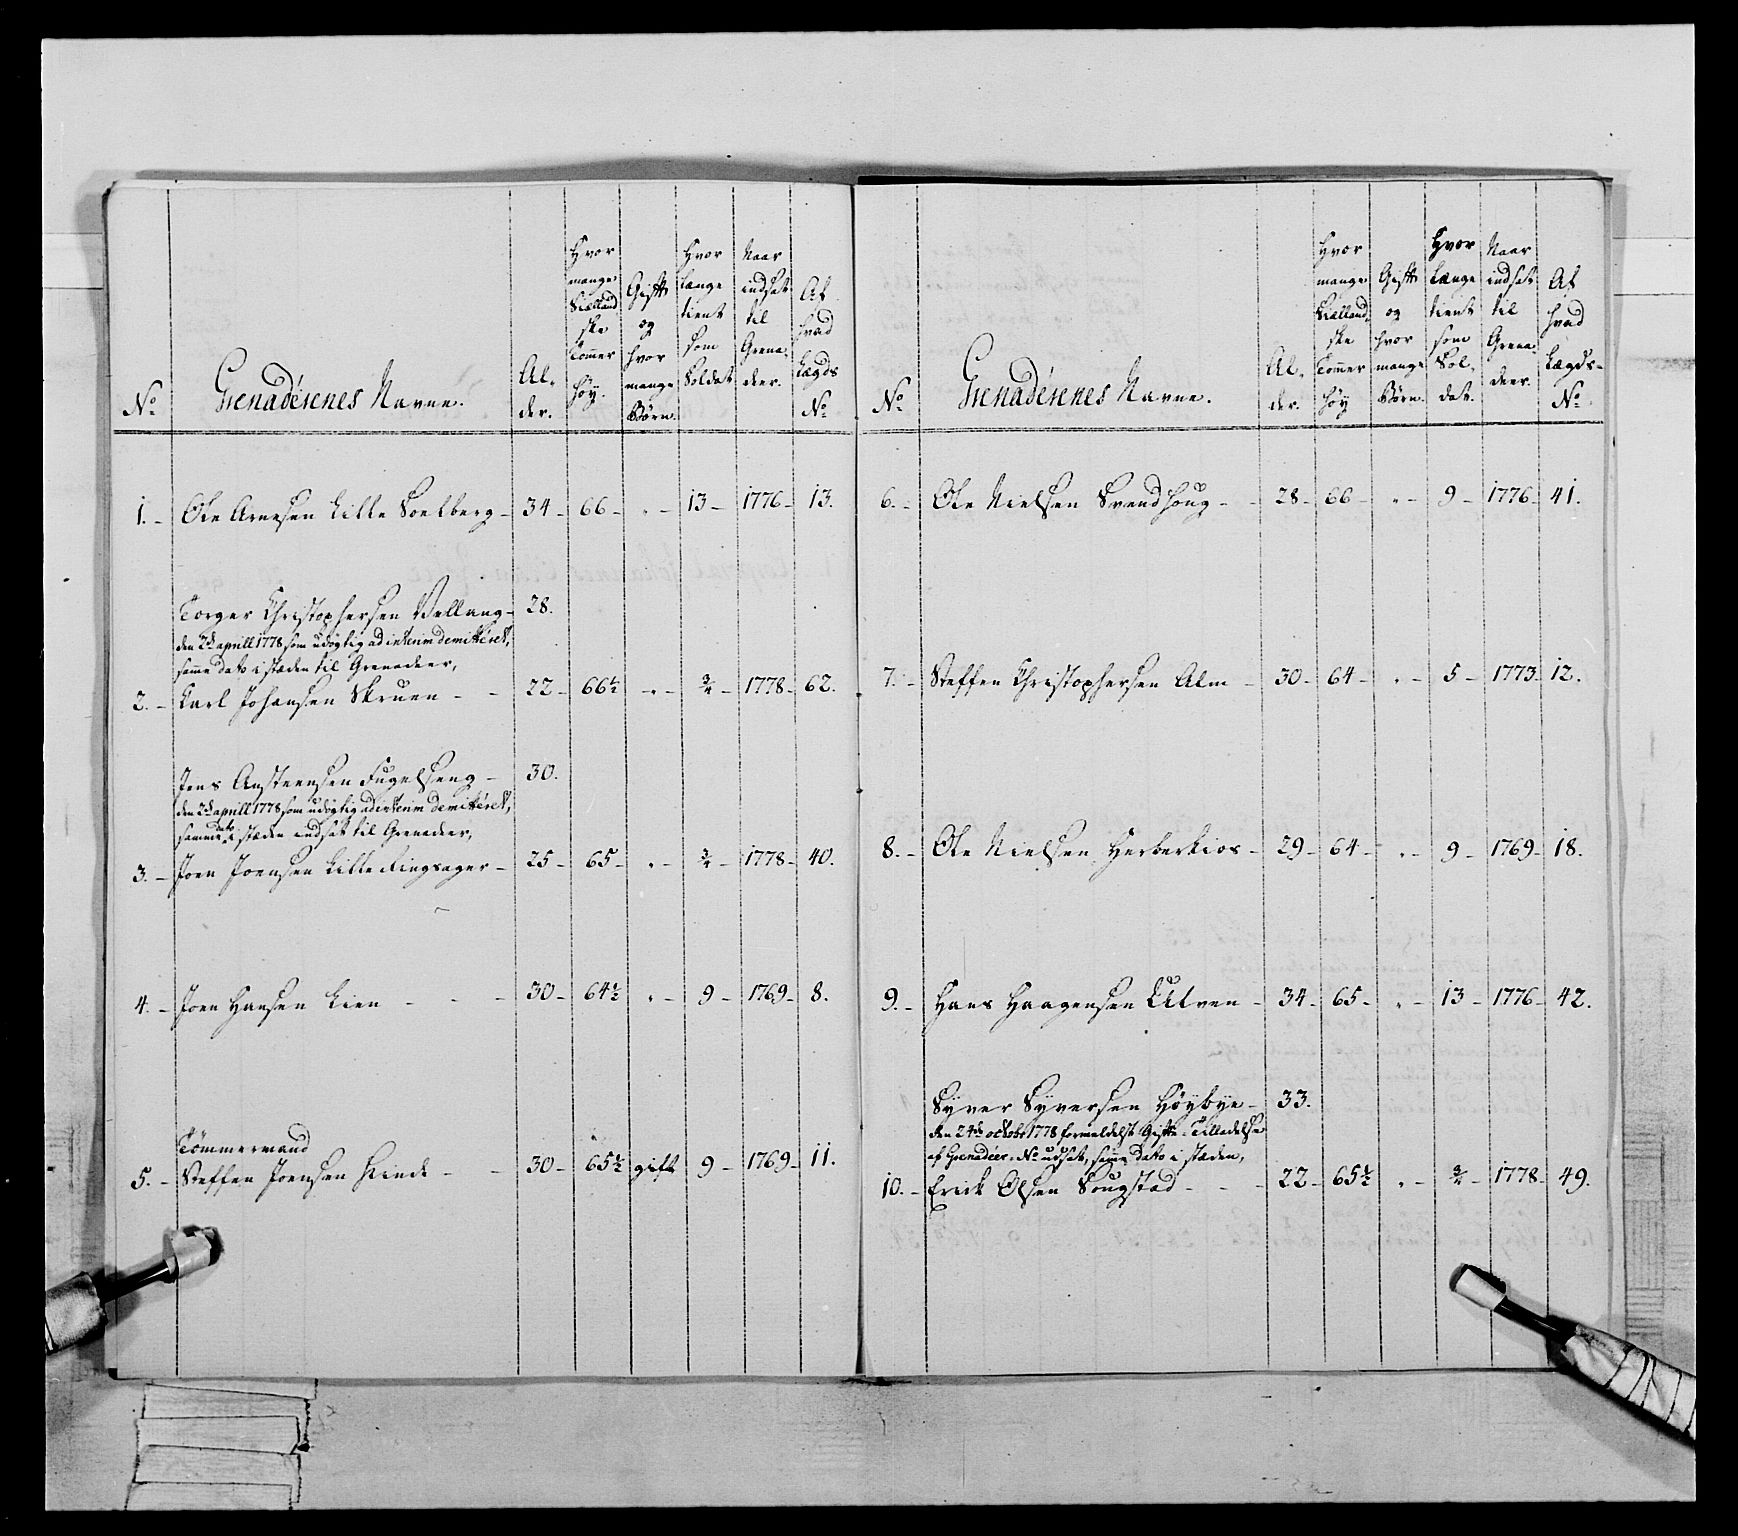 No
Grenadérenes Navne.
Al-
der.
Hvor
mange
Siælland
ske
Tommer
høy.
Gift
og
hvor
mange
Børn.
Hvor
længe
tient
som
Soldat
Naar
indsat
til
Grena-
deer.
Af
hvad
Lægds
No
1. - Ole Arnesen Lille Soelberg - 34 - 66 - " - 13 - 1776 - 13.
Torger Christophersen Vellang - 28.
den 2de aprill 1778 som udøgtig ad interim demitteret,
samme dato i stæden til Grenadeer,
2. - Karl Johansen Skruen - - 22 - 66½ - " - ¾ - 1778 - 62.
Jens Ansteensen Fugelseng - 30.
den 2de aprill 1778 som udøgtig ad interim demitteret,
samme dato i stæden indsat til Grenadeer,
3. - Joen Joensen Lille Ringsager - 25 - 65 - " - ¾ - 1778 - 40.
4. - Joen Hansen Lien - - - 30 - 64½ " - 9 - 1769 - 8.
Tømmermand
5. - Steffen Joensen Hinde - - 30 - 65½ gift 9 - 1769 - 11.
No
Grenadérenes Navne.
Al-
der.
Hvor
mange
Siælland-
ske
Tommer
høy
Gift
og
hvor
mange
Børn.
Hvor
Længe
tient
som
Sol-
dat.
Naar
indsat
til
Grena-
deer.
Af
hvad
Lægds-
No
6. - Ole Nielsen Svendhoug - - 28 - 66 - " - 9 - 1776 - 41.
7. - Steffen Christophersen Alm - 30 - 64 - " - 5 - 1773. 12.
8. - Ole Nielsen Herberkios - 29 - 64 - " - 9 - 1769 - 18.
9. - Hans Haagensen Ulven - 34 - 65 - " - 13 - 1776 - 42.
Syver Syversen Høybye - 33.
den 24de octobr 1778 formedelst Gifte-Tilladelse
af Grenadeer-No udsat, samme dato i stæden,
10. - Erick Olsen Sougstad - - - 22 - 65½ " - ¾ - 1778 - 49.